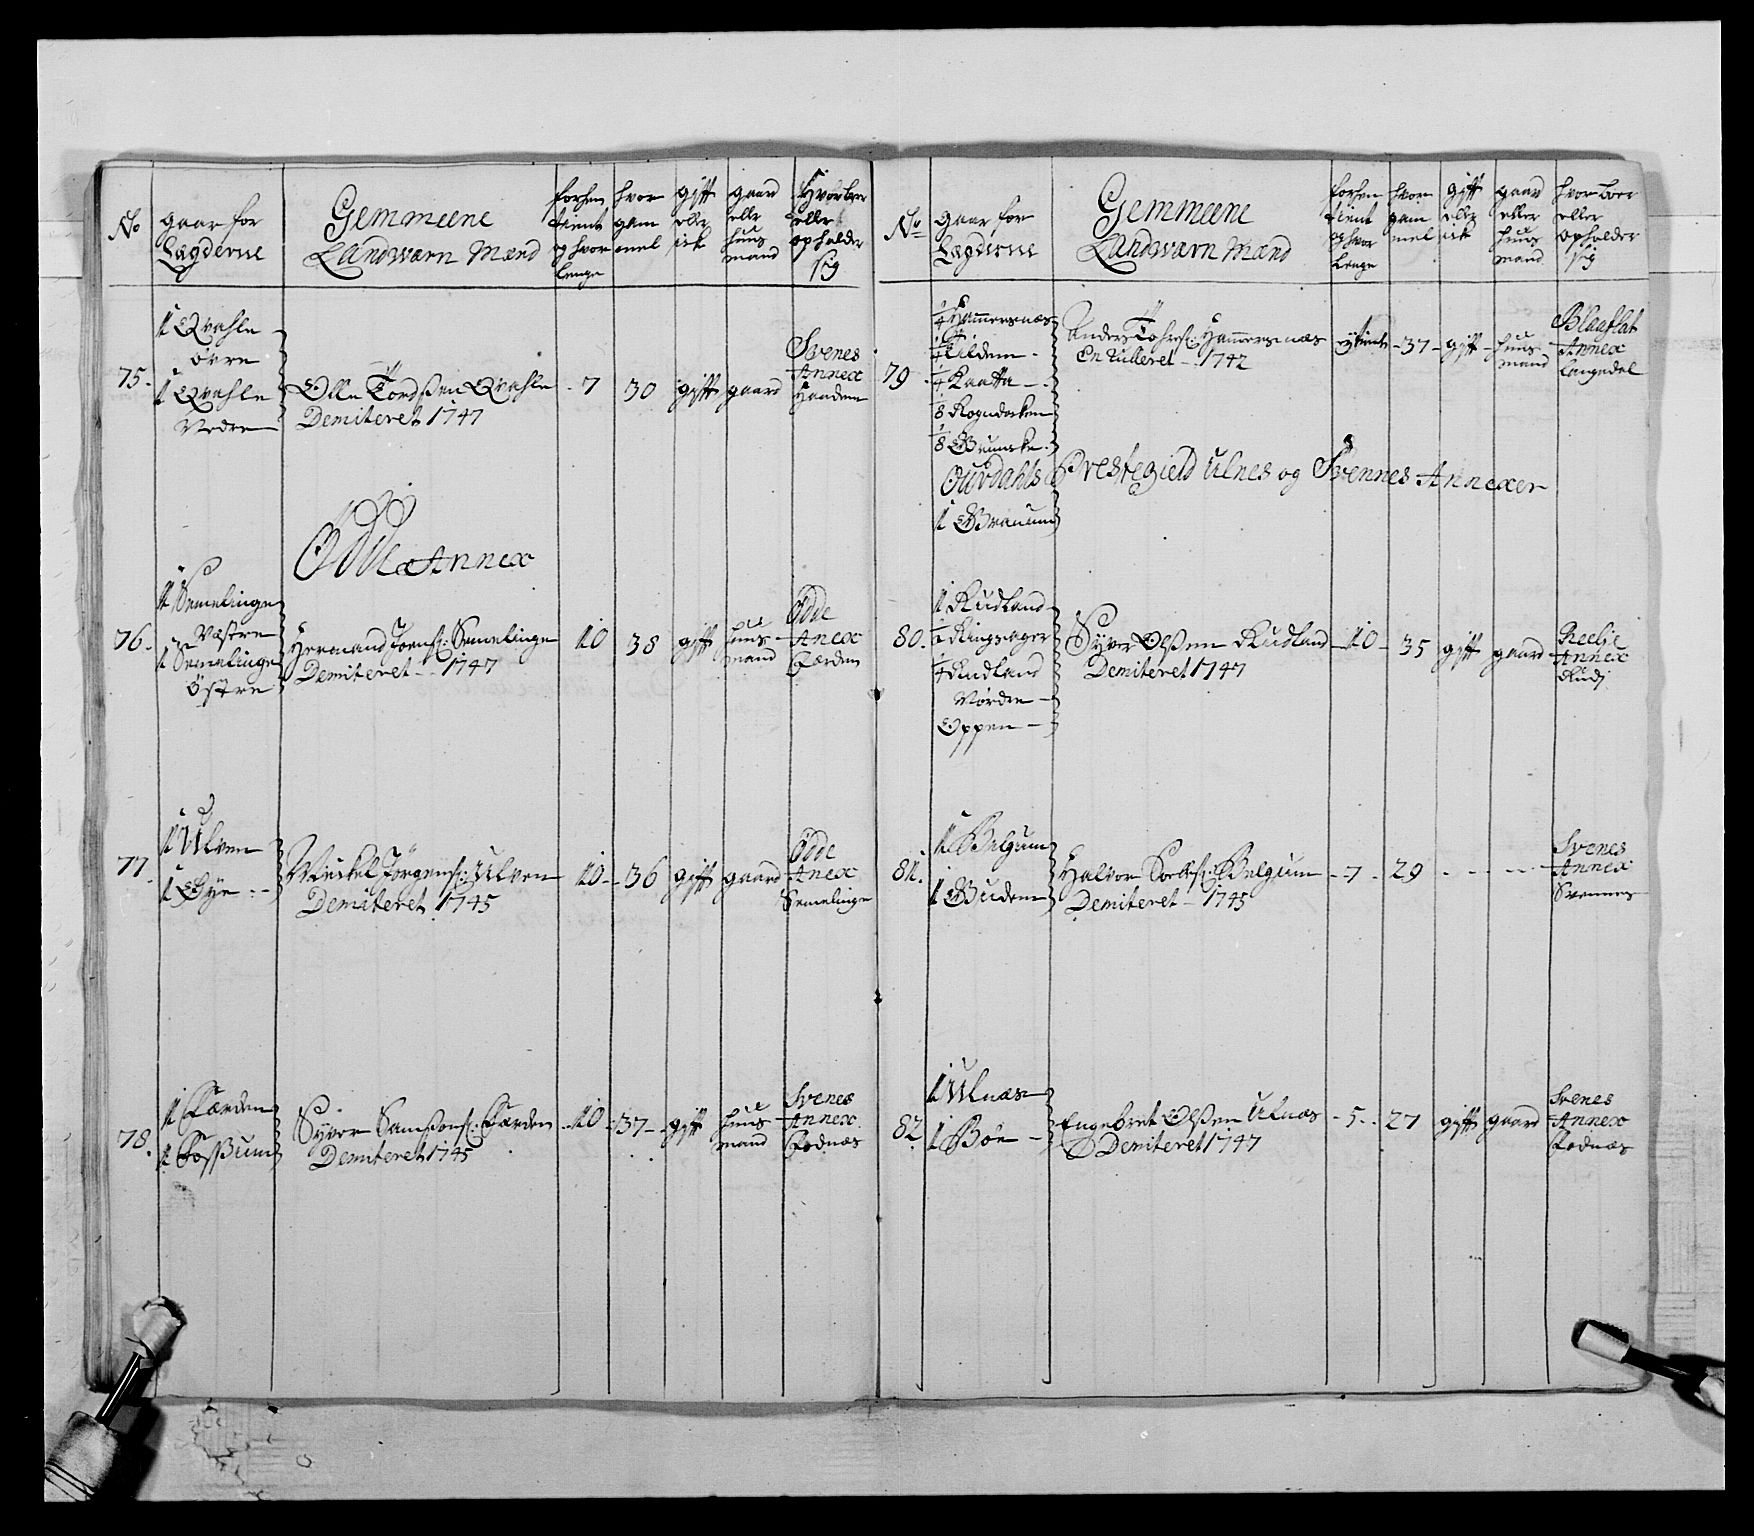 No
gaar for
Lægderne
Gemmeene
Landwærn Mænd
forhen
tient
og hvor
lenge
hvor
gam
mel
gift
eller
eik
gaard
eller
huus
mand
Hvor boer
eller
opholder
sig
75.
1 Qvahle
øvre
1 Qvahle
Nedre
Olle TordSen Qvahle
Demiteret 1747
7
30
gift
gaard
Svenes
Annex
Haadem
Ødde Annex
76.
1 Semelinge
Væstre
1 Semelinge
Østre
Hermand Torens: Semelinge
Demiteret 1747
10
38
gift
huus
mand
Ødde
Anex
Færden
77.
1 Ulven
1 Gye
Mickel Jørgens: Ulven
Demiteret 1745
10
36
gift
gaard
Ødde
Anex
Semelinge
78.
1 Færden
1 FosSum
Syver SamSons: Færden
Demiteret 1745
10
37
gift
huus
mand
Svenes
Annex
Fodnæs
No
Gaar for
Lægderne
Gemmeene
Landwærn Mænd
forhen
tient
og hvor
lenge
hvor
gam
mel
gift
eller
eik
gaard
eller
huus
mand
hvor boer
eller
opholder
sig
79.
1/4 Hammersnæs
1/4 Kildem
1/4 Kaatta
1/8 Rogndocken
1/8 Brunske
Anders Tohres: Hammersnæs
En Rulleret 1742
37
gift
huus
mand
Blaaflat
Annex
Langedal
Ourdahls Prestegield Ulnes og Svennes Annexer
1 Grauum
80.
1 Rudland
1/2 Ringsager
1/4 Rudland
Nordre
Oppen
Syver OlSen Rudland
Demiteret 1747
10
35
gift
gaard
Reelie
Annex
Rudj
81.
1 Belgum
1 Budem
Halvor Sells: Belgum
Demiteret 1745
7
29
Svenes
Annex
Svennes
82
1 Ulnæs
1 Bøe
Engebret OlSen Ulnæs
Demiteret 1747
5
27
gift
gaard
Svenes
Annex
Fodnæs